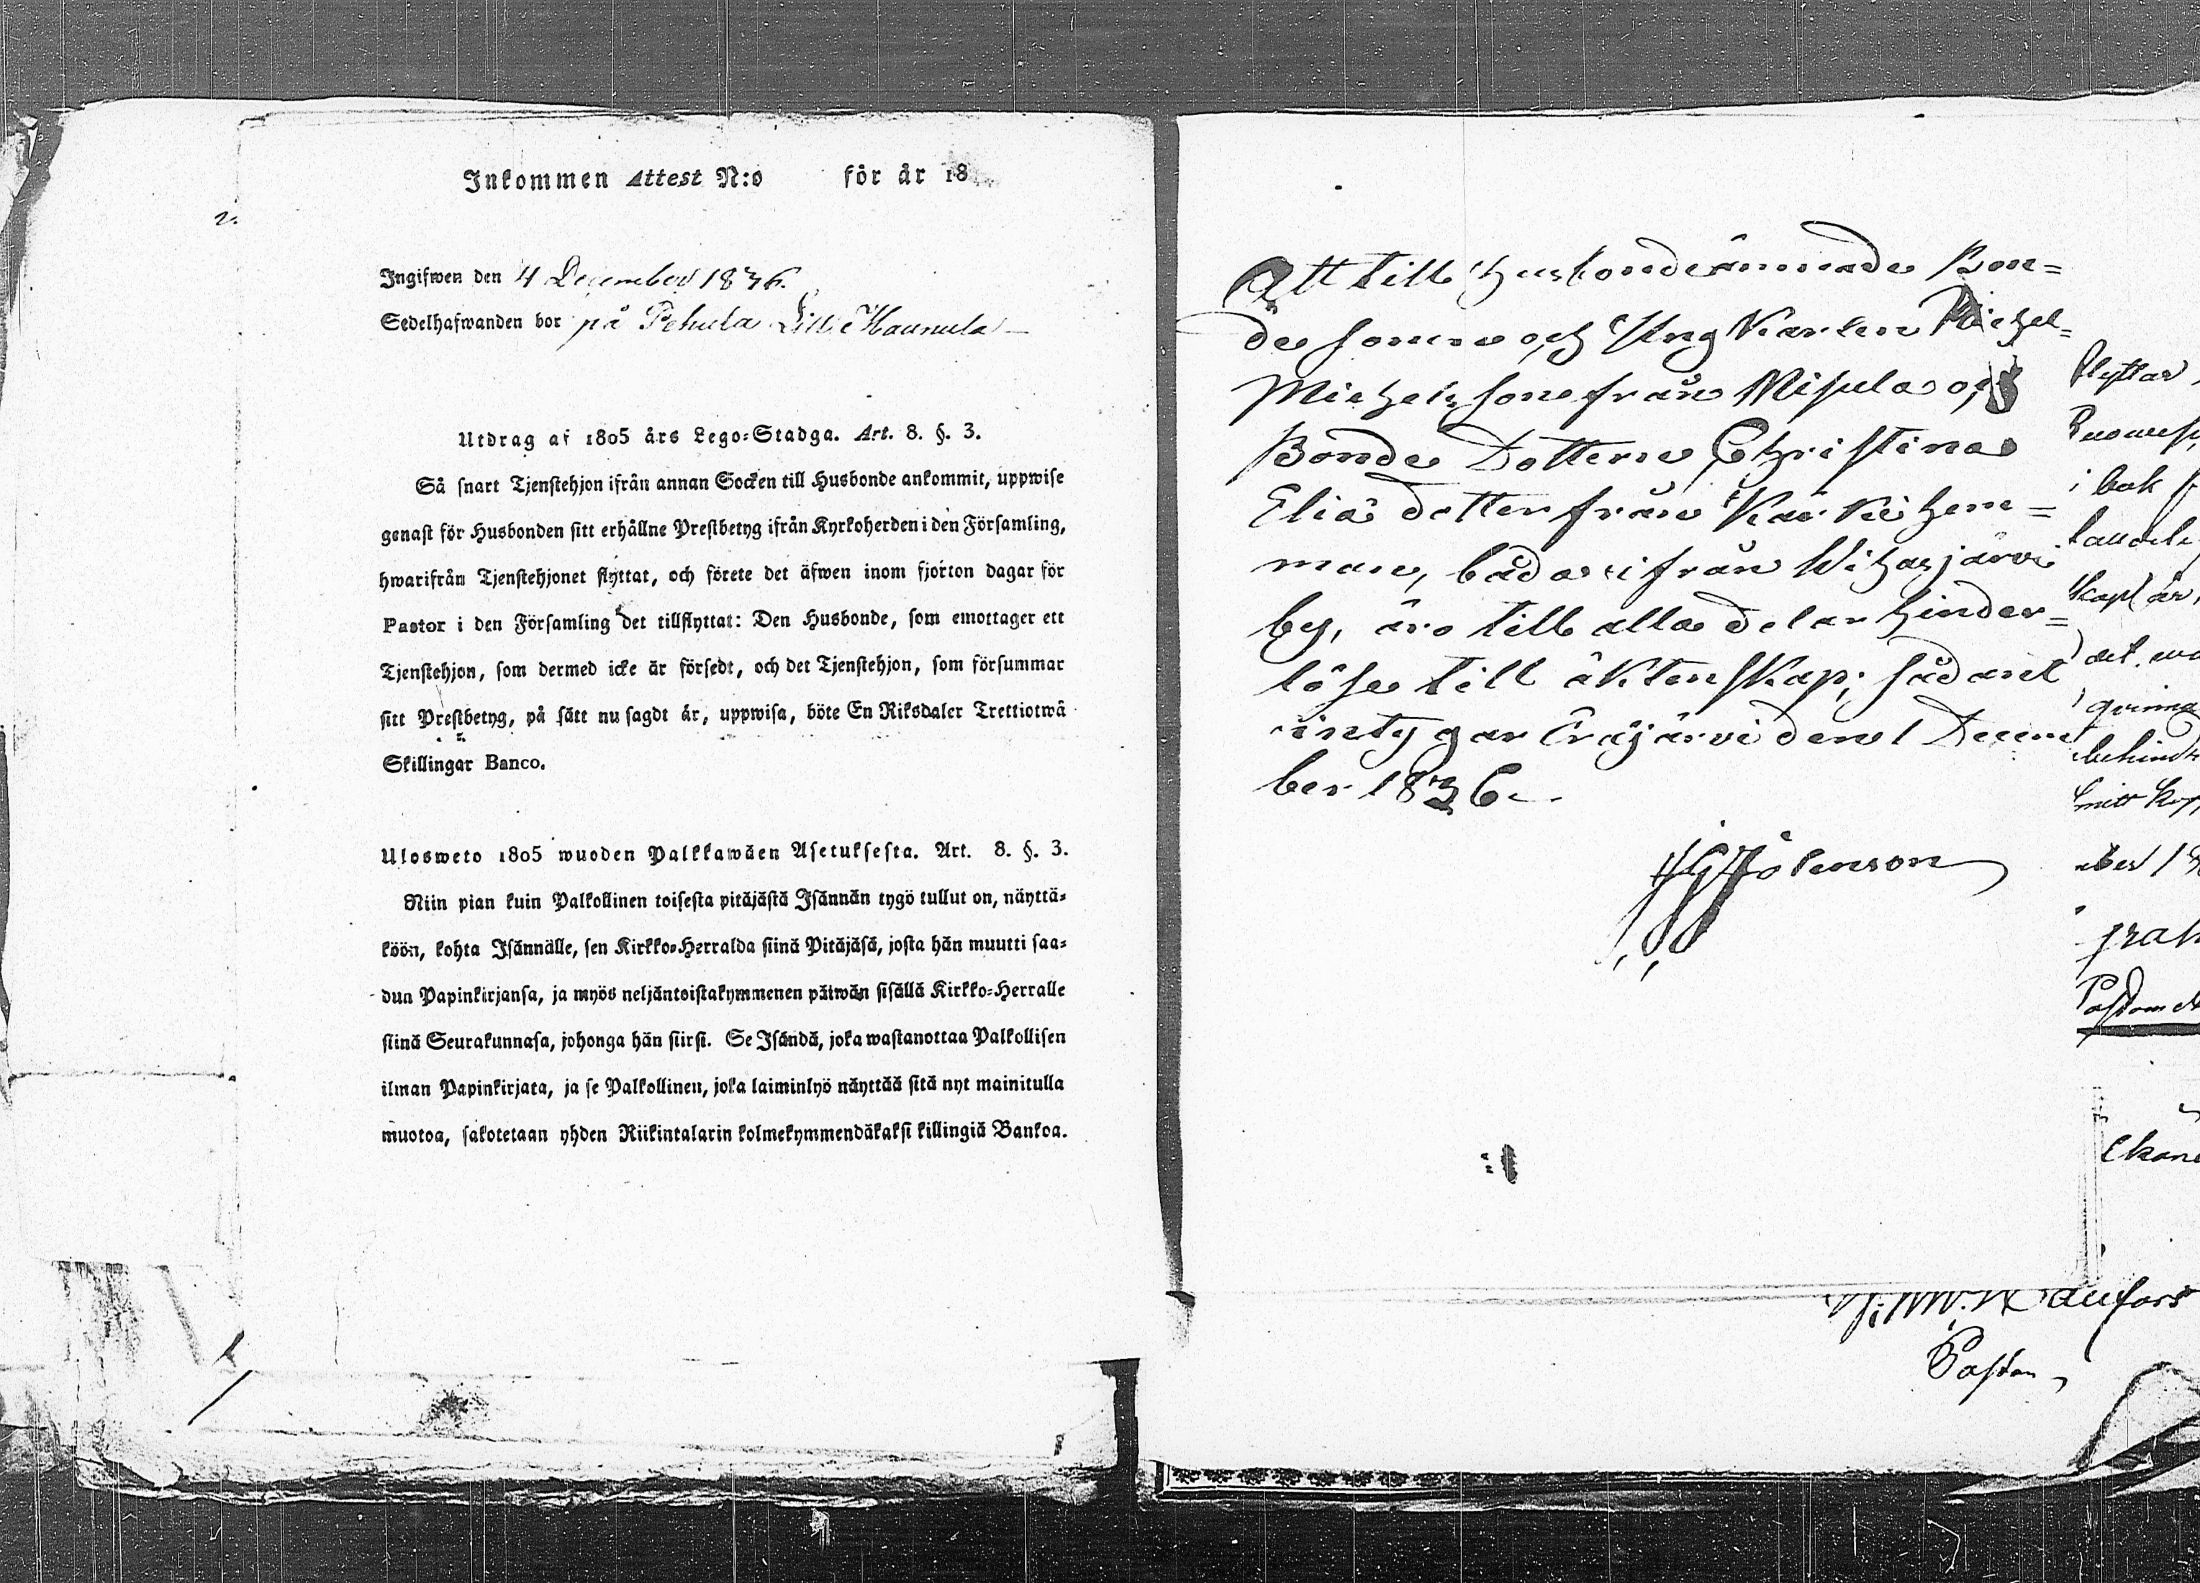 Inkommen Attest N:o för år 18
2.
Ingifwen den 4 December 1836.
Sedelhafwanden bor på Pehula Lill Hannula
Utdrag af 1805 års Lego-Stadga. Art. 8. §. 3.
Så snart Tjenstehjon ifrån annan Socken till Husbonde ankommit, uppwise
genast för Husbonden sitt erhållne Prestbetyg ifrån Kyrkoherden i den Församling,
hwarifrån Tjenstehjonet flyttat, och förete det äfwen inom fjorton dagar för
Pastor i den Församling det tillflyttat: Den Husbonde, som emottager ett
Tjenstehjon, som dermed icke är försedt, och det Tjenstehjon, som försummar
sitt Prestbetyg, på sätt nu sagdt är, uppwisa, böte En Riksdaler Trettiotwå
Skillingar Banco.
Ulosweto 1805 wuoden Palkkawäen Asetuksesta. Art. 8. §. 3.
Niin pian kuin Palkollinen toisesta pitäjästä Isännän tygö tullut on, näyttä-
köön, kohta Isännälle, sen Kirkko-Herralda siinä Pitäjäsä, josta hän muutti saa-
dun Papinkirjansa, ja myös neljäntoistakymmenen päiwän sisällä Kirkko-Herralle
siinä Seurakunnasa, johonga hän siirsi. Se Isändä, joka wastanottaa Palkollisen
ilman Papinkirjata, ja se Palkollinen, joka laiminlyö näyttää sitä nyt mainitulla
muotoa, sakotetaan yhden Riikintalarin kolmekymmendäkaksi killingiä Bankoa.
Att till husbonde ämnade Bon=
de sonen och Ung Karlen Michel=
Michelsson från Misula och
Bonde Dottern Christina
Elias dotter från Kärki hem=
man, båda ifrån Wihasjärvi
by, äro till alla delar hinder=
löse till äktenskap; sådant
intygar Eräjärvi den 1 Decem
ber 1836.
flyttar
i bok
det
qvinna
behind
mitt
ber 18
Pastor